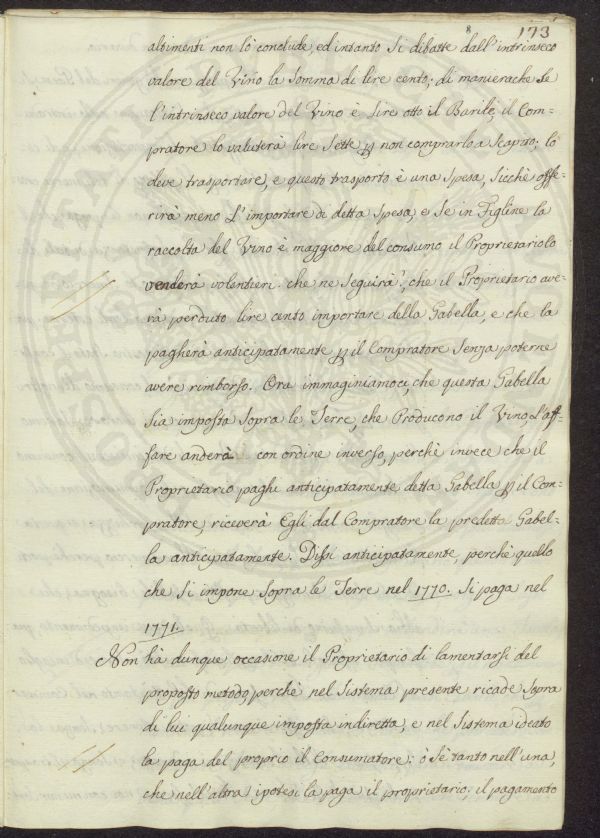 173
altrimenti non lo conclude, ed intanto si dibatte dall'intrinseco
valore del Vino la Somma di lire cento; di manierachè se
l'intrinseco valore del Vino è lire otto il Barile, il Com=
pratore lo valuterà lire sette p non comprarlo a scapito: lo
deve trasportare, e questo trasporto è una spesa, sicchè offe=
rirà meno l'importare di detta spesa, e se in Figline la
raccolta del Vino è maggiore del consumo il Proprietario lo
venderà volentieri. che ne seguirà?, che il Proprietario ave=
rà perduto lire cento importare della Gabella, e che la
pagherà anticipatamente p il Compratore senza poterne
avere rimborso. Ora immaginiamoci, che questa Gabella
sia imposta sopra le Terre, che Producono il Vino, l'af=
fare anderà con ordine inverso, perchè invece che il
Proprietario paghi anticipatamente detta Gabella p il Com=
pratore, riceverà Egli dal Compratore la predetta Gabel=
la anticipatamente. Dissi anticipatamente, perchè quello
che si impone sopra le Terre nel 1770. si paga nel
1771.
Non hà dunque occasione il Proprietario di lamentarsi del
proposto metodo, perchè nel Sistema presente ricade sopra
di lui qualunque imposta indiretta, e nel Sistema ideato
la paga del proprio il Consumatore; ò se tanto nell'una,
che nell'altra ipotesi la paga il proprietario, il pagamento